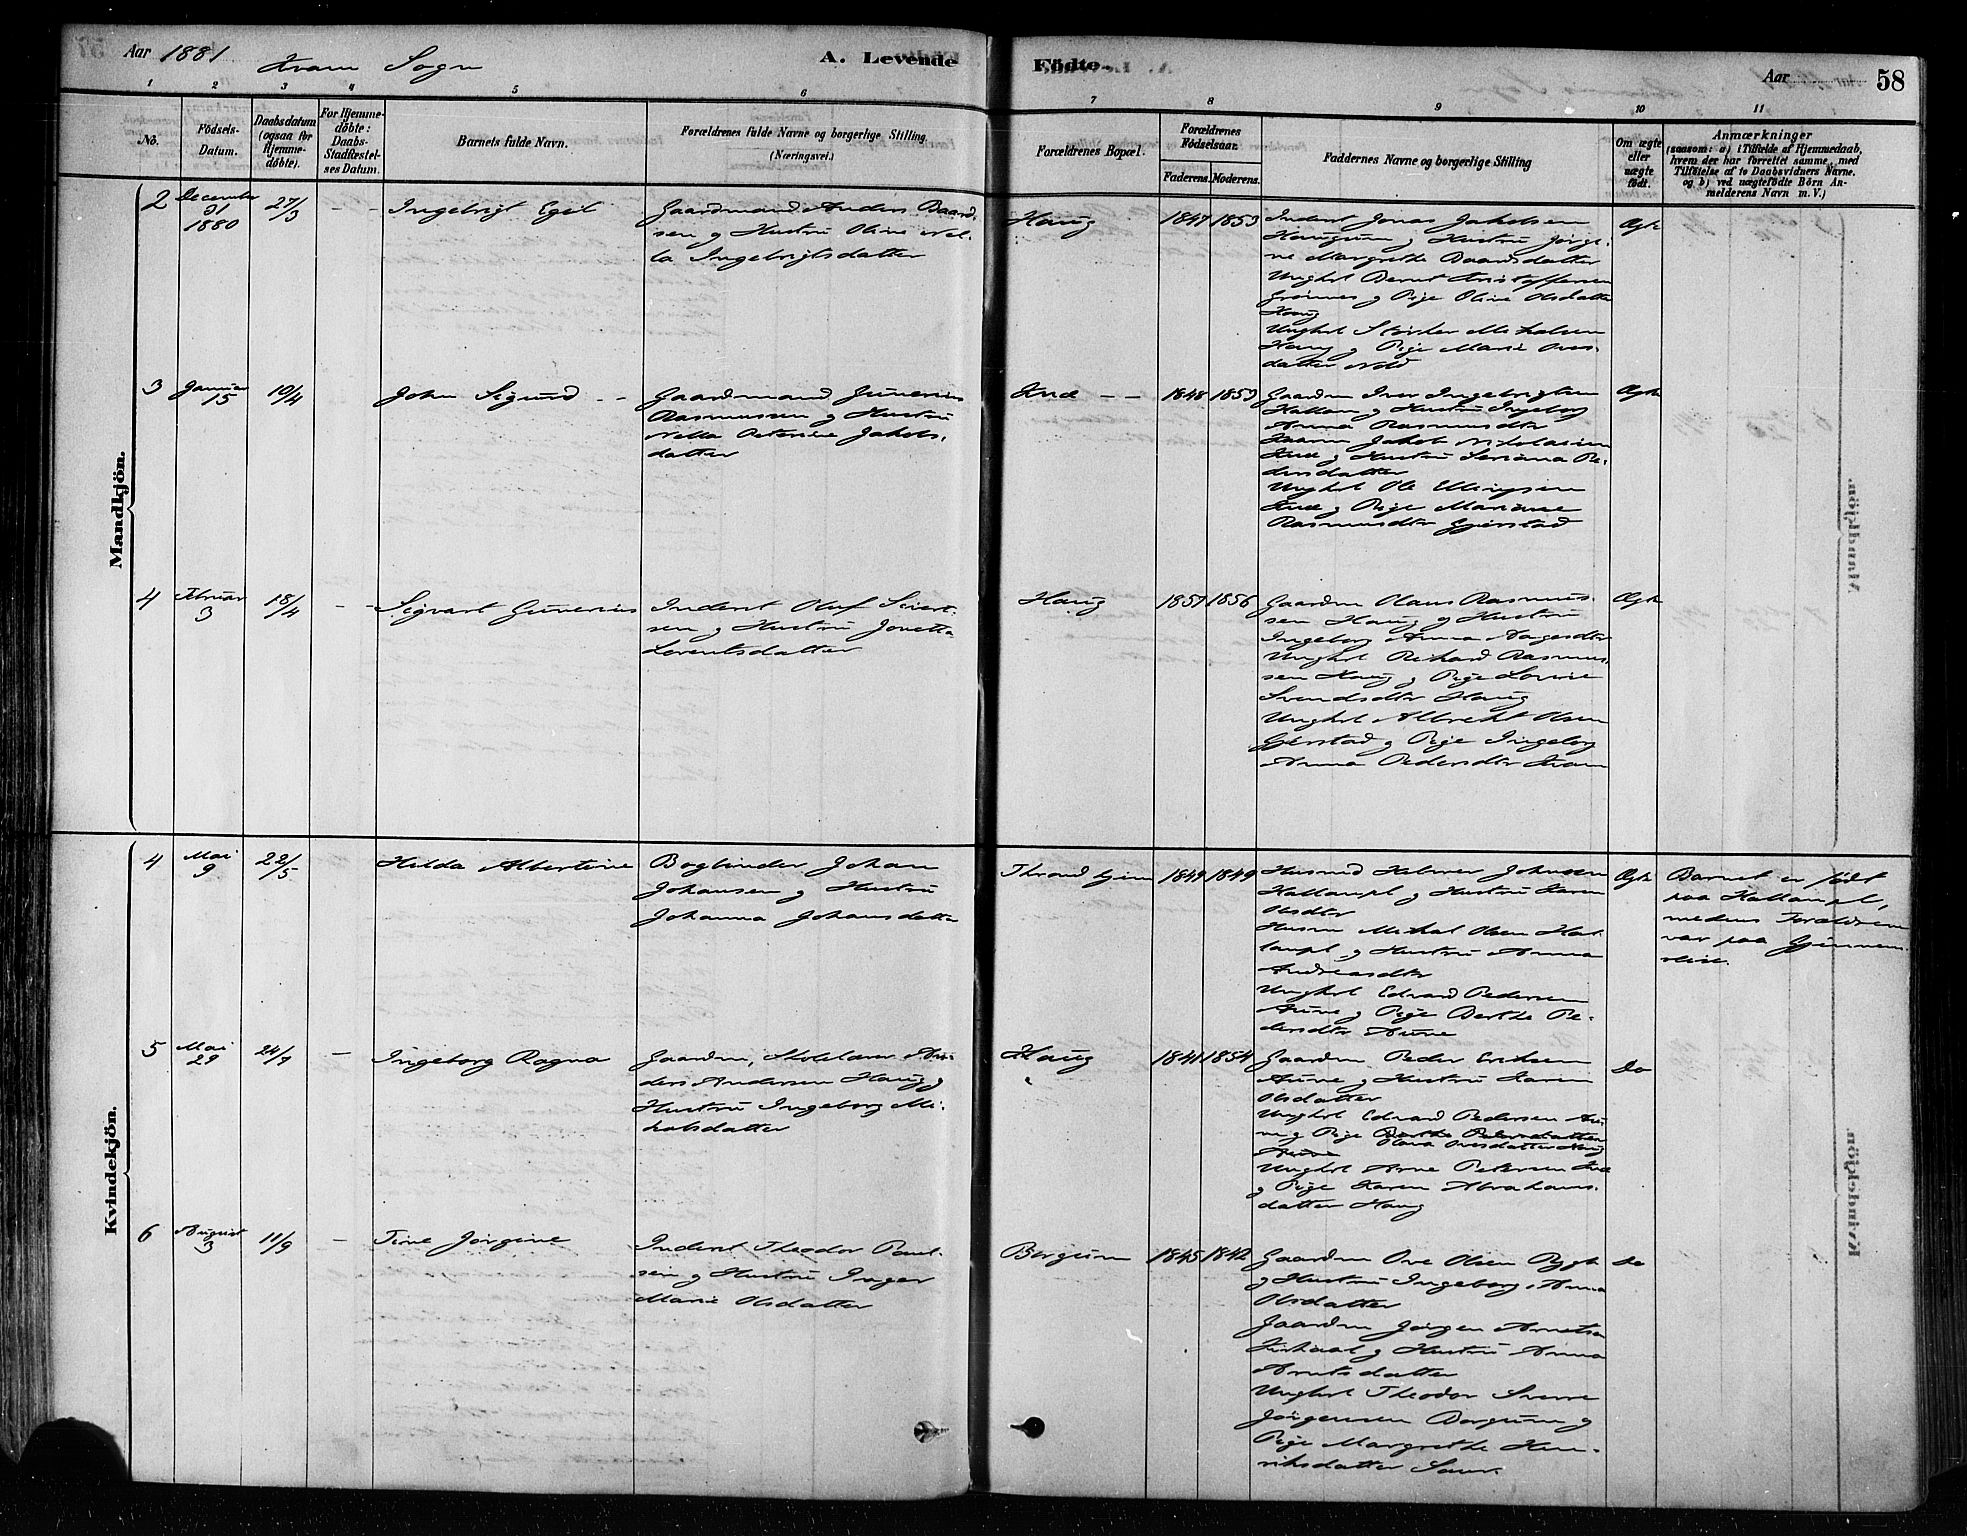 Aar 1881 Kvam Sogn
A. Levende
Födte.
Aar
58
1
2
3
4
5
6
7
8
9
10
11
No.
Födsels-
Datum.
Daabsdatum
(ogsaa for
Hjemme-
døbte).
For Hjemme-
døbte:
Daabs-
Stadfæstel-
ses Datum.
Barnets fulde Navn.
Forældrenes fulde Navne og borgerlige Stilling.
(Næringsvei.)
Forældrenes Bopæl.
Forældrenes
Födselsaar.
Faderens. Moderens.
Faddernes Navne og borgerlige Stilling
Om ægte
eller
uægte
født.
Anmærkninger
(saasom: a) i Tilfælde af Hjemmedaab,
hvem der har forrettet samme, med
Tilföielse af to Daabsvidners Navne.
og b) ved uægtefödte Börn An-
melderens Navn m. V.)
Mandkjön.
2
December
31
1880
27/3
- -
Ingebrigt Egil
Gaardmand Anders Baard-
sen og Hustru Oline Nel-
la Ingebrigtsdatter
Haug
1847 1853
Inderst Jonas Jakobsen
Haugum og Hustru Jørgi-
ne Margrethe Baardsdatter
Ungkrl Bernt Kristoffersen
Grønnes og Pige Oline Olsdatter
Haug
Ungkrl Mikalsen
Haug og Pige Marie Oves-
datter
Ægte
3
Januar
15
10/4
- -
John Sigurd - -
Gaardmand Gunerius
Rasmussen og Hustru
Nella Peterine Jakobs-
datter
Knæ - -
1848 1853
Gaardm Iver Ingebrigtsen
Hallam og Hustru Ingeborg
Anna Rasmusdtr
Jakob Nikolaisen
Knæ og Hustru Seriana Pe-
dersdatter
Ungkrl Ole Ellingsen
Knæ og Pige Marianne
Rasmusdtr Gjerstad
Ægte
4
Februar
3
18/4
- -
Sigvart Gunerius
Inderst Oluf Sivert-
sen og Hustru Jonetta
Lorentsdatter
Haug
1857 1856
Gaardm Olaus Rasmus-
sen Haug og Hustru
Ingeborg Anna Aagesdtr
Ungkrl Rikard Rasmus-
sen Haug og Pige Lovise
Svendsdtr Haug
Ungkrl Albrekt Olsen
Gjerstad og Pige Ingeborg
Anna Pedersdtr Kvam
Ægte
Kvindekjön.
4
Mai
9
22/5
Hilda Albertine
Bogbinder Johan
Johansen og Hustru
Johanna Johansdatter
Throndhjem
1849 1849
Husmd Helmer Johnsen
Hallampl og Hustru Karen
Olsdtr
Husm Mikal Olsen Hal-
lampl og Hustru Anna
Andreasdtr
Ungkrl Edvard Pedersen
Aune og Pige Berthe Pe-
dersdtr Aune
Ægte
Barnet er født
paa Hallampl,
medens Forældrene
var paa Gjennem-
reise.
5
Mai
29
24/7
-
Ingeborg Ragna
Gaardm, Skolelærer An-
ders Andersen Haug og
Hustru Ingeborg Mi-
kalsdatter
Haug
1841 1854
Gaardm Peder Eriksen
Aune og Hustru Karen
Olsdatter
Ungkrl Edvard Pedersen Au-
ne og Pige Berthe Pedersdatter
Olava Ovesdatter Haug
Aune
Ungkrl Arne Petersen Knæ
og Pige Karen Abrahams-
datter Haug
Do
6
August
3
11/9
-
Tine Jørgine
Inderst Theodor Paul-
sen og Hustru Inger
Marie Olsdatter
Borgum
1845 1842
Gaardm Ove Olsen Rygh
og Hustru Ingeborg Anna
Olsdatter
Gaardm Jørgen Arntsen
og Hustru Anna
Arntsdatter
Ungkrl Theodor Sverre
Jørgensen Borgum og
Pige Margrethe Hen-
riksdatter
Do